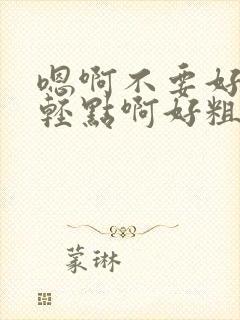 嗯啊不要好
輕點啊好粗
蒙琳